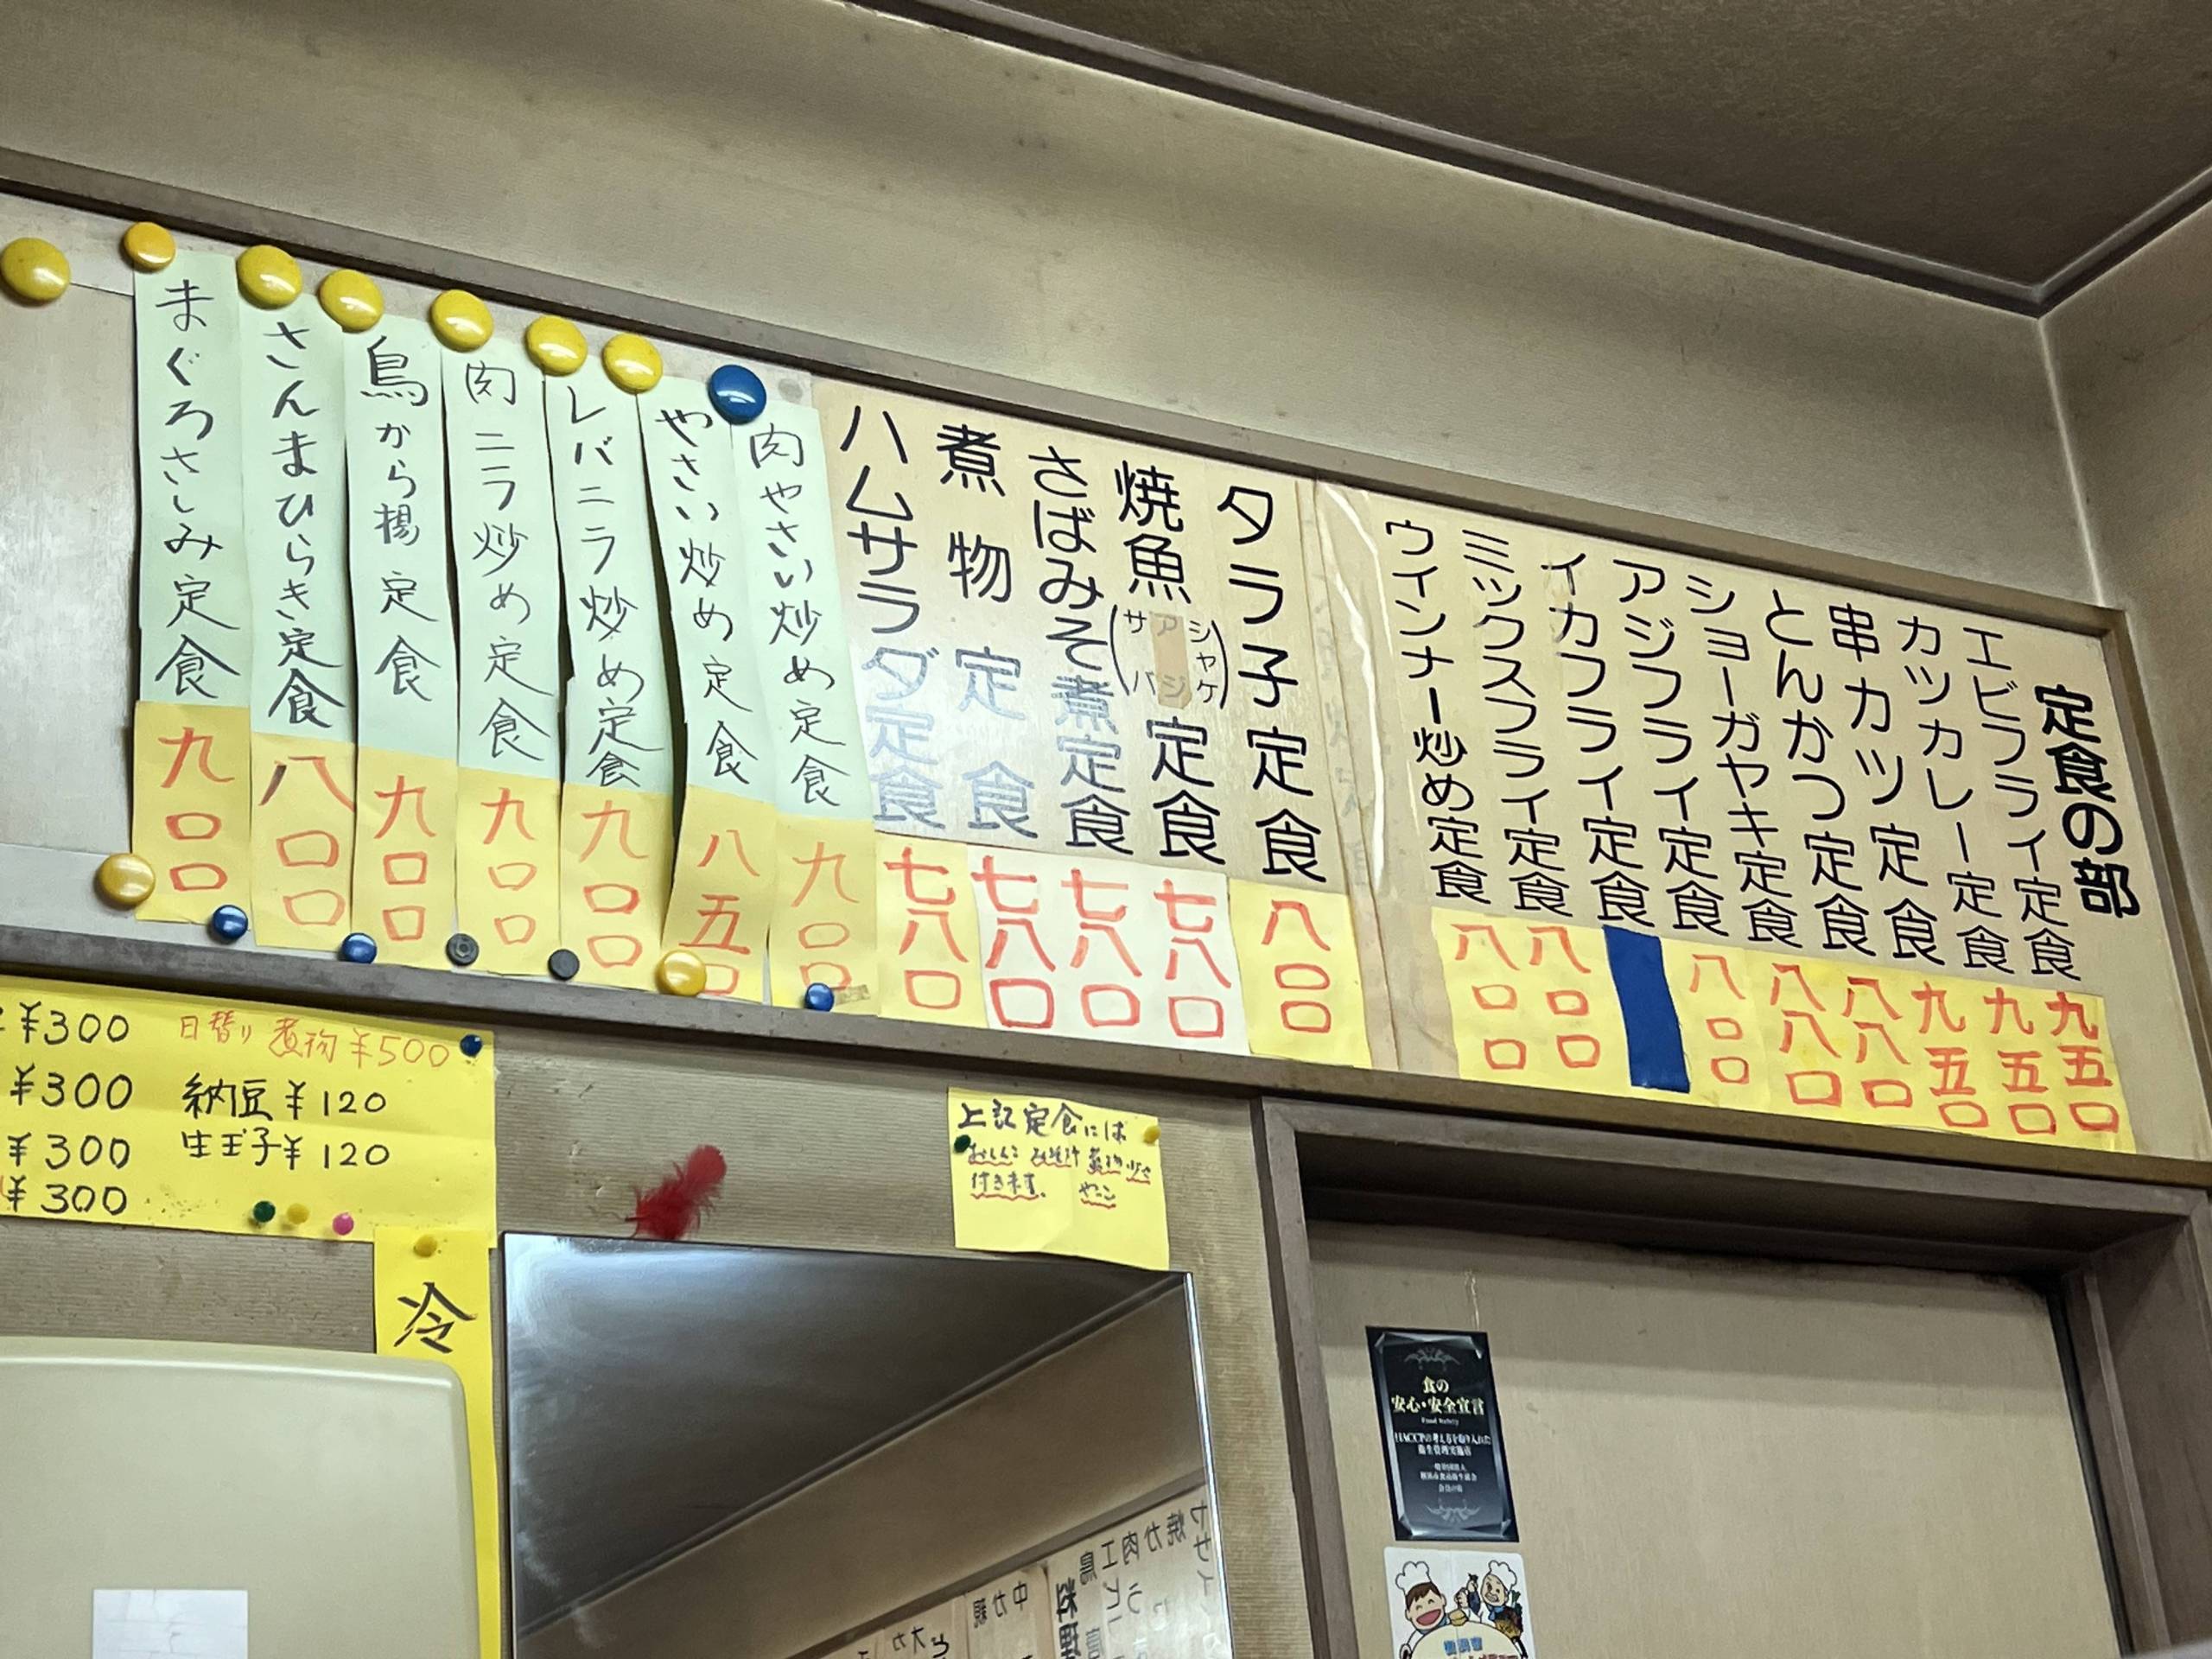 定食の部
エビフライ定食 九五〇
カツカレー定食 九五〇
串カツ定食 九五〇
とんかつ定食 八八〇
ショーガヤキ定食 八八〇
アジフライ定食 八〇〇
イカフライ定食
ミックスフライ定食 八〇〇
ウインナー炒め定食 八〇〇
タラ子定食 八〇〇
焼魚(シャケ アジ サバ)定食 七八〇
さばみそ煮定食 七八〇
煮物定食 七八〇
ハムサラダ定食 七八〇
肉やさい炒め定食 九〇〇
やさい炒め定食 八五〇
レバニラ炒め定食 九〇〇
肉ニラ炒め定食 九〇〇
鳥から揚定食 九〇〇
さんまひらき定食 八〇〇
まぐろさしみ定食 九〇〇
¥300
¥300
¥300
¥300
日替り煮物¥500
納豆¥120
生玉子¥120
冷
上記定食には
おしんこ みそ汁
付きます。
食の
安心・安全宣言
Food Safety
HACCPの考え方を取り入れた
衛生管理実施店